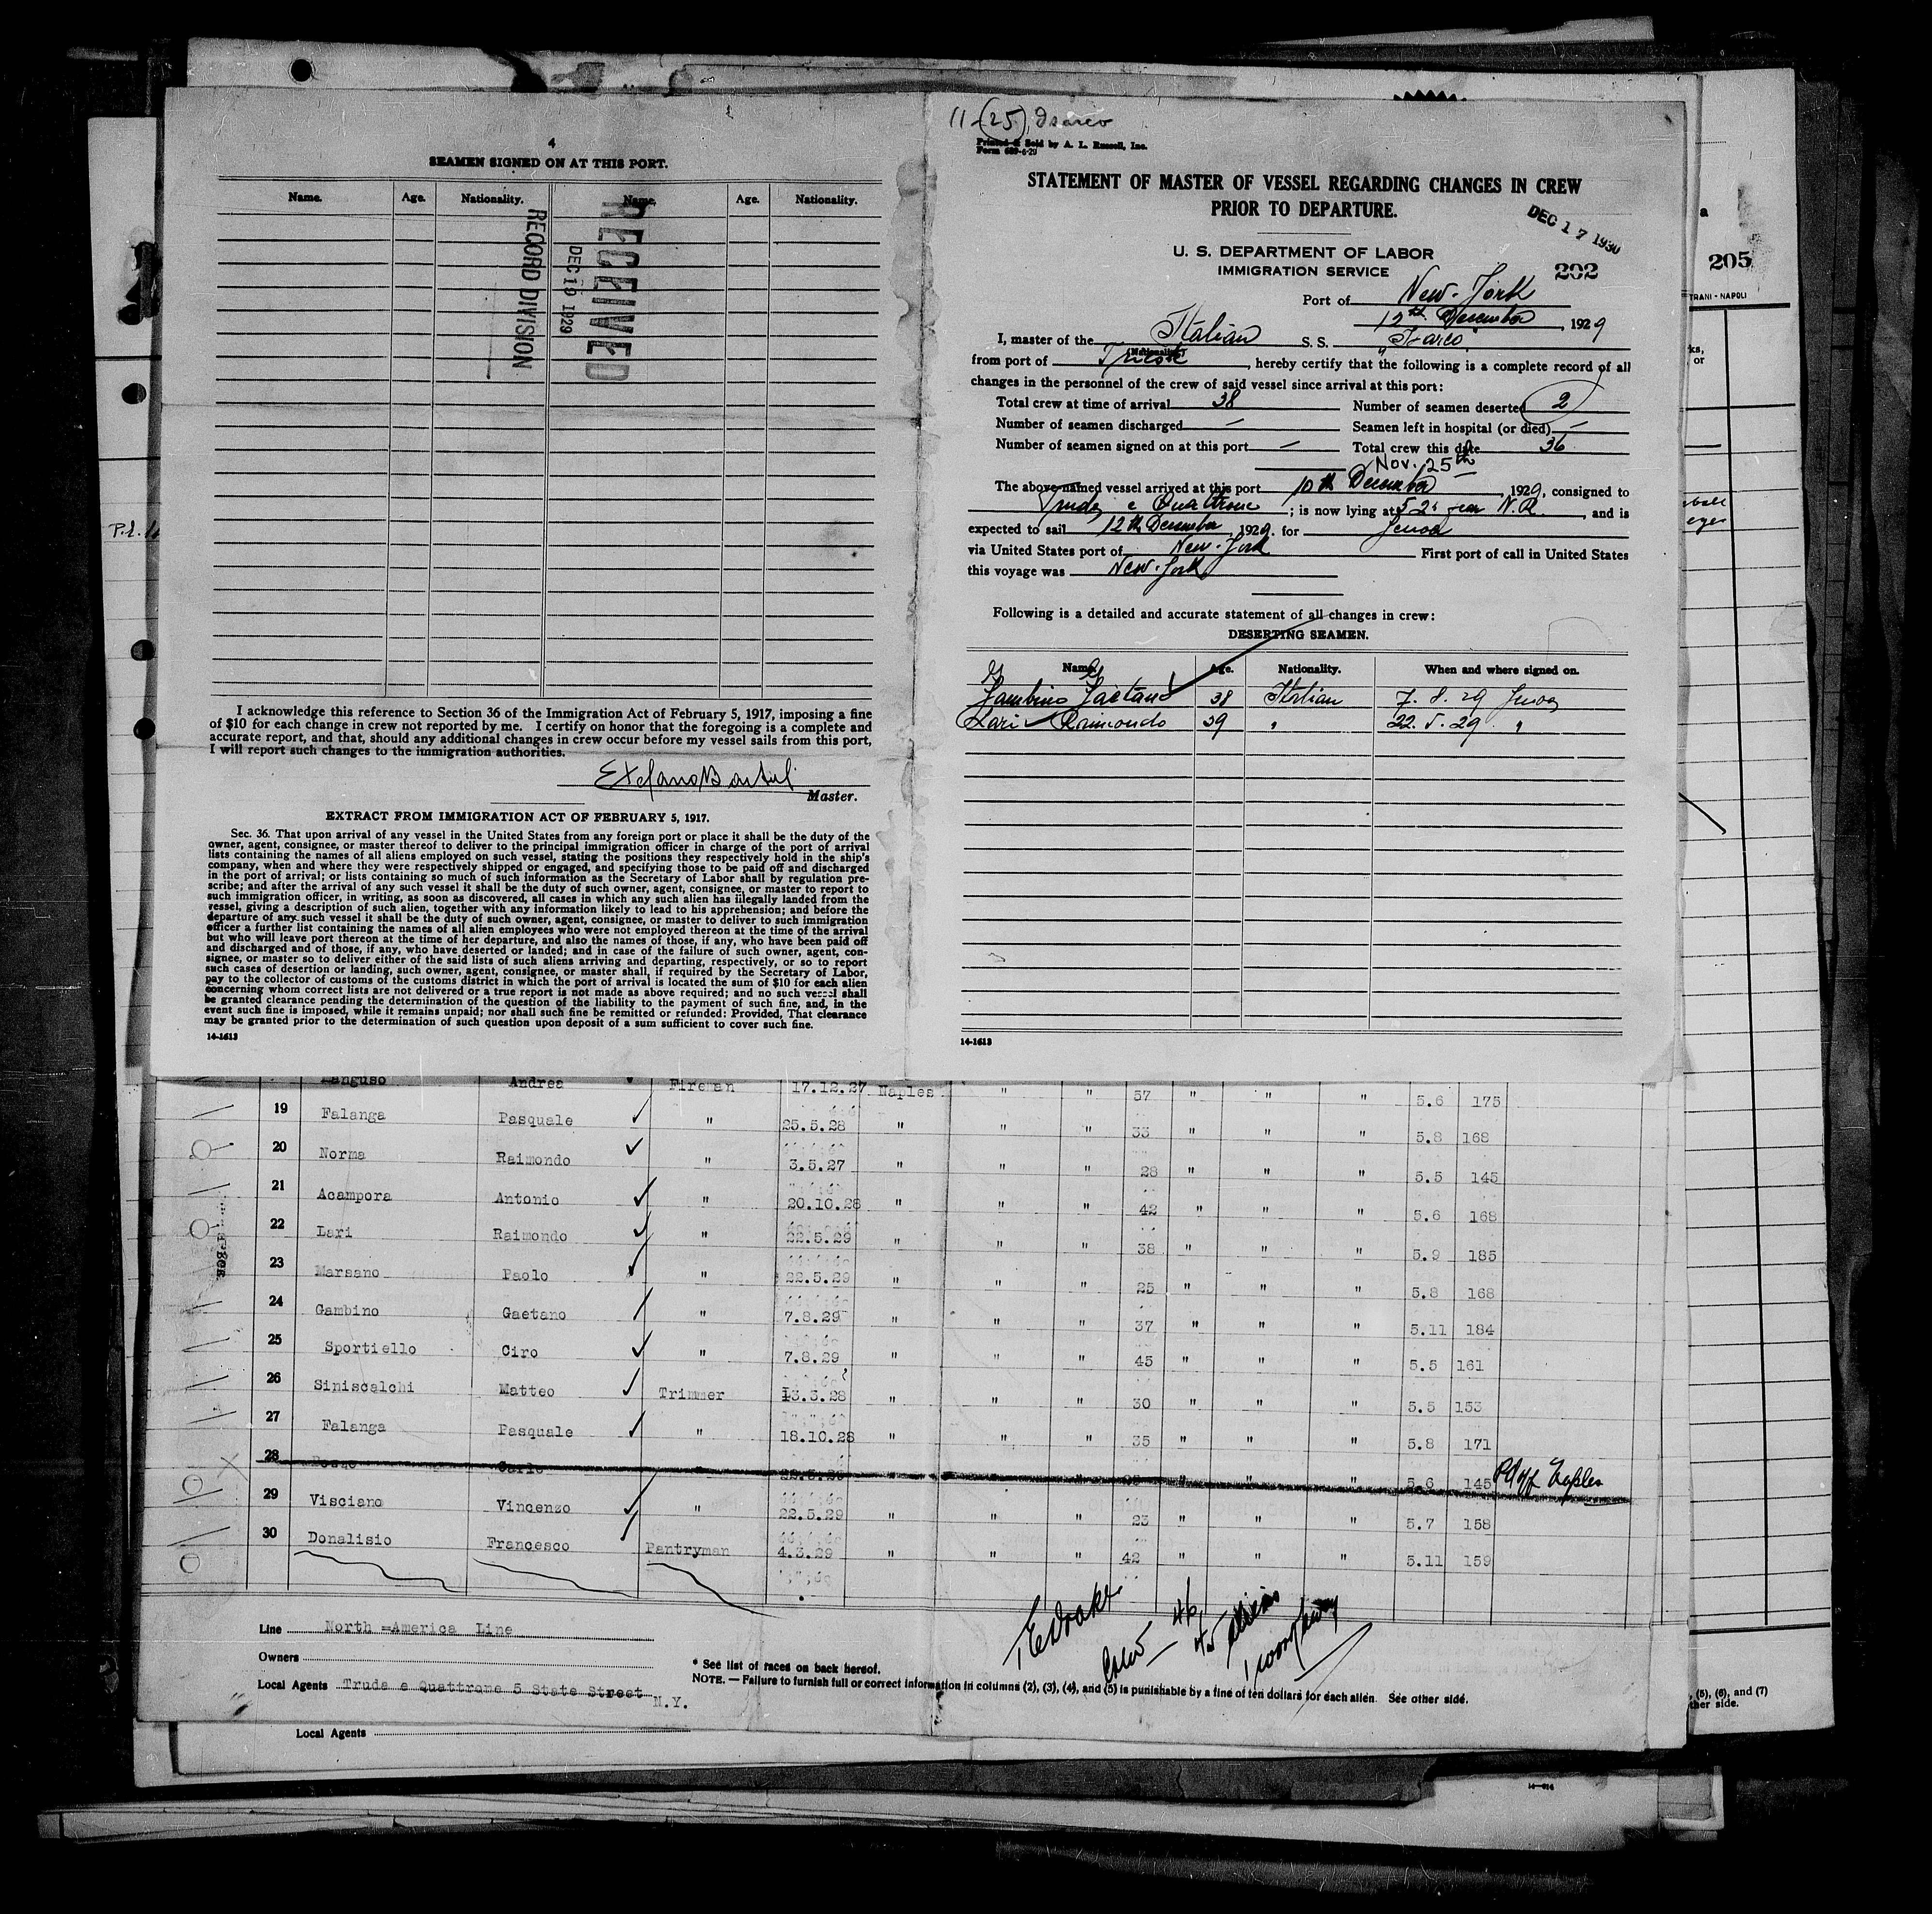 4
SEAMEN SIGNED ON AT THIS PORT.
Name. Age. Nationality. Name. Age. Nationality.
RECEIVED
DEC 19 1929
RECORD DIVISION
I acknowledge this reference to Section 36 of the Immigration Act of February 5, 1917, imposing a fine
of $10 for each change in crew not reported by me. I certify on honor that the foregoing is a complete and
accurate report, and that, should any additional changes in crew occur before my vessel sails from this port,
I will report such changes to the immigration authorities.
Master.
EXTRACT FROM IMMIGRATION ACT OF FEBRUARY 5, 1917.
Sec. 36. That upon arrival of any vessel in the United States from any foreign port or place it shall be the duty of the
owner, agent, consignee, or master thereof to deliver to the principal immigration officer in charge of the port of arrival
lists containing the names of all aliens employed on such vessel, stating the positions they respectively hold in the ship's
company, when and where they were respectively shipped or engaged, and specifying those to be paid off and discharged
in the port of arrival; or lists containing so much of such information as the Secretary of Labor shall by regulation pre-
scribe; and after the arrival of any such vessel it shall be the duty of such owner, agent, consignee, or master to report to
such immigration officer, in writing, as soon as discovered, all cases in which any such alien has illegally landed from the
vessel, giving a description of such alien, together with any information likely to lead to his apprehension; and before the
departure of any such vessel it shall be the duty of such owner, agent, consignee, or master to deliver to such immigration
officer a further list containing the names of all alien employees who were not employed thereon at the time of the arrival
but who will leave port thereon at the time of her departure, and also the names of those, if any, who have been paid off
and discharged and of those, if any, who have deserted or landed; and in case of the failure of such owner, agent, con-
signee, or master so to deliver either of the said lists of such aliens arriving and departing, respectively, or so to report
such cases of desertion or landing, such owner, agent, consignee, or master shall, if required by the Secretary of Labor,
pay to the collector of customs of the customs district in which the port of arrival is located the sum of $10 for each alien
concerning whom correct lists are not delivered or a true report is not made as above required; and no such vessel shall
be granted clearance pending the determination of the question of the liability to the payment of such fine, and, in the
event such fine is imposed, while it remains unpaid; nor shall such fine be remitted or refunded: Provided, That clearance
may be granted prior to the determination of such question upon deposit of a sum sufficient to cover such fine.
14-1613
11-(25) Isarco
Printed & Sold by A. L. Russell, Inc.
Form 689-6-29
STATEMENT OF MASTER OF VESSEL REGARDING CHANGES IN CREW
PRIOR TO DEPARTURE.
DEC 17 1930
U. S. DEPARTMENT OF LABOR
IMMIGRATION SERVICE
202
Port of New-York
12th December, 1929
I, master of the Italian S. S. "Isarco"
(Nationality)
from port of Trieste, hereby certify that the following is a complete record of all
changes in the personnel of the crew of said vessel since arrival at this port:
Total crew at time of arrival 38 Number of seamen deserted 2
Number of seamen discharged — Seamen left in hospital (or died) —
Number of seamen signed on at this port — Total crew this date 36
Nov. 25th
The above-named vessel arrived at this port 10th December, 1929, consigned to
Truda e Quattrone; is now lying at 52, and is
expected to sail 12th December, 1929. for Genoa
via United States port of New-York First port of call in United States
this voyage was New-York
Following is a detailed and accurate statement of all changes in crew:
DESERTING SEAMEN.
Name. Age. Nationality. When and where signed on.
G G
Gambino Gaetano 38 Italian 7.8.29 Genoa
Lari Raimondo 39 " 22.5.29 "
14-1613
205
TRANI - NAPOLI
Languso Andrea Fireman 17.12.27 Naples " " 37 " " " 5.6 175
19 Falanga Pasquale " 25.5.28 " " " 33 " " " 5.8 168
20 Norma Raimondo " 3.5.27 " " " 28 " " " 5.5 145
21 Acampora Antonio " 20.10.28 " " " 42 " " " 5.6 168
22 Lari Raimondo " 22.5.29 " " " 38 " " " 5.9 185
23 Marsano Paolo " 22.5.29 " " " 25 " " " 5.8 168
24 Gambino Gaetano " 7.8.29 " " " 37 " " " 5.11 184
25 Sportiello Ciro " 7.8.29 " " " 45 " " " 5.5 161
26 Siniscalchi Matteo Trimmer 13.3.28 " " " 30 " " " 5.5 153
27 Falanga Pasquale " 18.10.28 " " " 35 " " " 5.8 171
28 Carlo " " " " " " " 5.6 145 Pd off Naples
29 Visciano Vincenzo " 22.5.29 " " " 23 " " " 5.7 158
30 Donalisio Francesco Pantryman 4.3.29 " " " 42 " " " 5.11 159
Line North =America Line
Owners
Local Agents Truda e Quattrone 5 State Street N.Y.
* See list of races on back hereof.
NOTE. — Failure to furnish full or correct information in columns (2), (3), (4), and (5) is punishable by a fine of ten dollars for each alien. See other side.
Crew — 46
45 aliens
, (5), (6), and (7)
ther side.
Local Agents